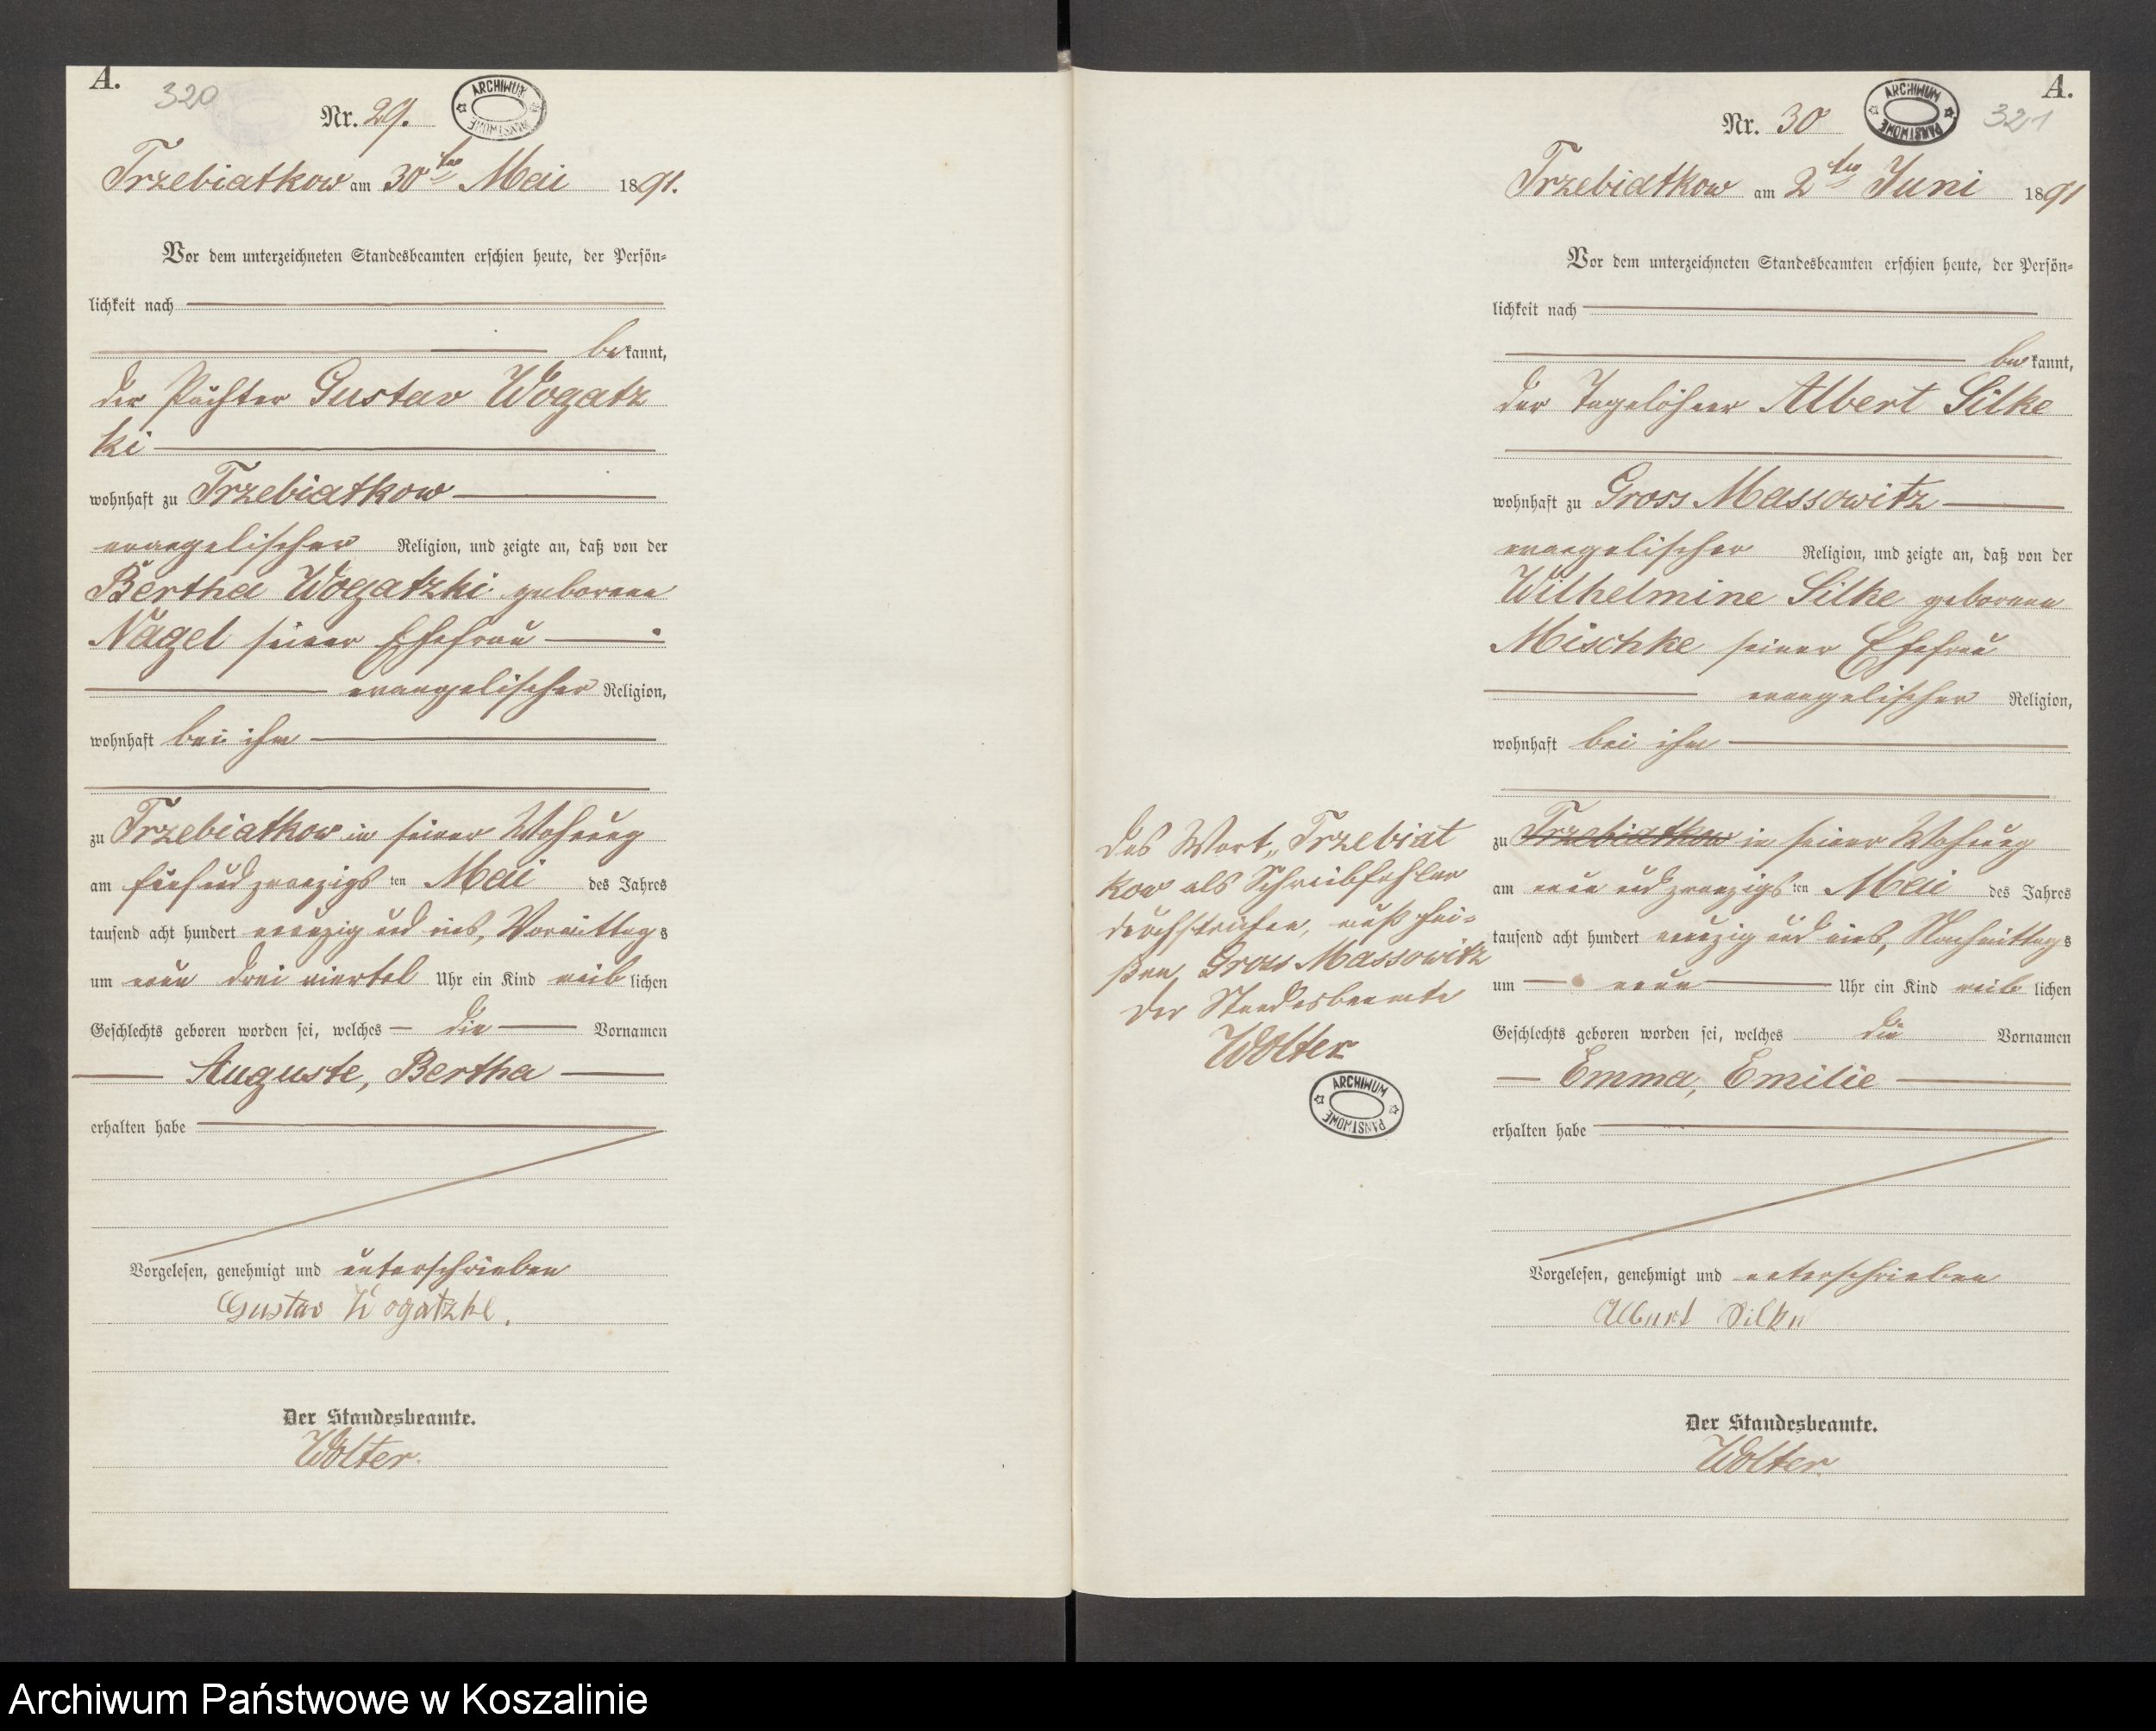 A.
320
Nr. 29.
ARCHIWUM PAŃSTWOWE
Trzebiatkow am 30ten Mai 1891.
Vor dem unterzeichneten Standesbeamten erschien heute, der Persön-
lichkeit nach
bekannt,
der Pächter Gustav Wogatz
ki
wohnhaft zu Trzebiatkow
evangelischer Religion, und zeigte an, daß von der
Bertha Wogatzki geborene
Nagel seiner Ehefrau
evangelischer Religion,
wohnhaft bei ihm
zu Trzebiatkow in seiner Wohnung
am fünfundzwanzigsten Mai des Jahres
tausend acht hundert neunzig und eins, Vormittags
um neun drei viertel Uhr ein Kind weiblichen
Geschlechts geboren worden sei, welches die Vornamen
Auguste, Bertha
erhalten habe
Vorgelesen, genehmigt und unterschrieben
Gustav Wogatzke.
Der Standesbeamte.
Wolter.
A.
Nr. 30
ARCHIWUM PAŃSTWOWE
321
Trzebiatkow am 2ten Juni 1891
Vor dem unterzeichneten Standesbeamten erschien heute, der Persön-
lichkeit nach
bekannt,
der Tagelöhner Albert Silke
wohnhaft zu Gross Massowitz
evangelischer Religion, und zeigte an, daß von der
Wilhelmine Silke geborene
Mischke seiner Ehefrau
evangelischer Religion,
wohnhaft bei ihm
zu Trzebiatkow in seiner Wohnung
am neun und zwanzigsten Mai des Jahres
tausend acht hundert neunzig und eins, Nachmittags
um neun Uhr ein Kind weiblichen
Geschlechts geboren worden sei, welches die Vornamen
Emma, Emilie
erhalten habe
Vorgelesen, genehmigt und unterschrieben
Albert Silke
Der Standesbeamte.
Wolter
Das Wort „Trzebiat
kow als Schreibfehler
durchstrichen, muß hei-
ßen, Gross Massowitz
Der Standesbeamte
Wolter
ARCHIWUM PAŃSTWOWE
Archiwum Państwowe w Koszalinie